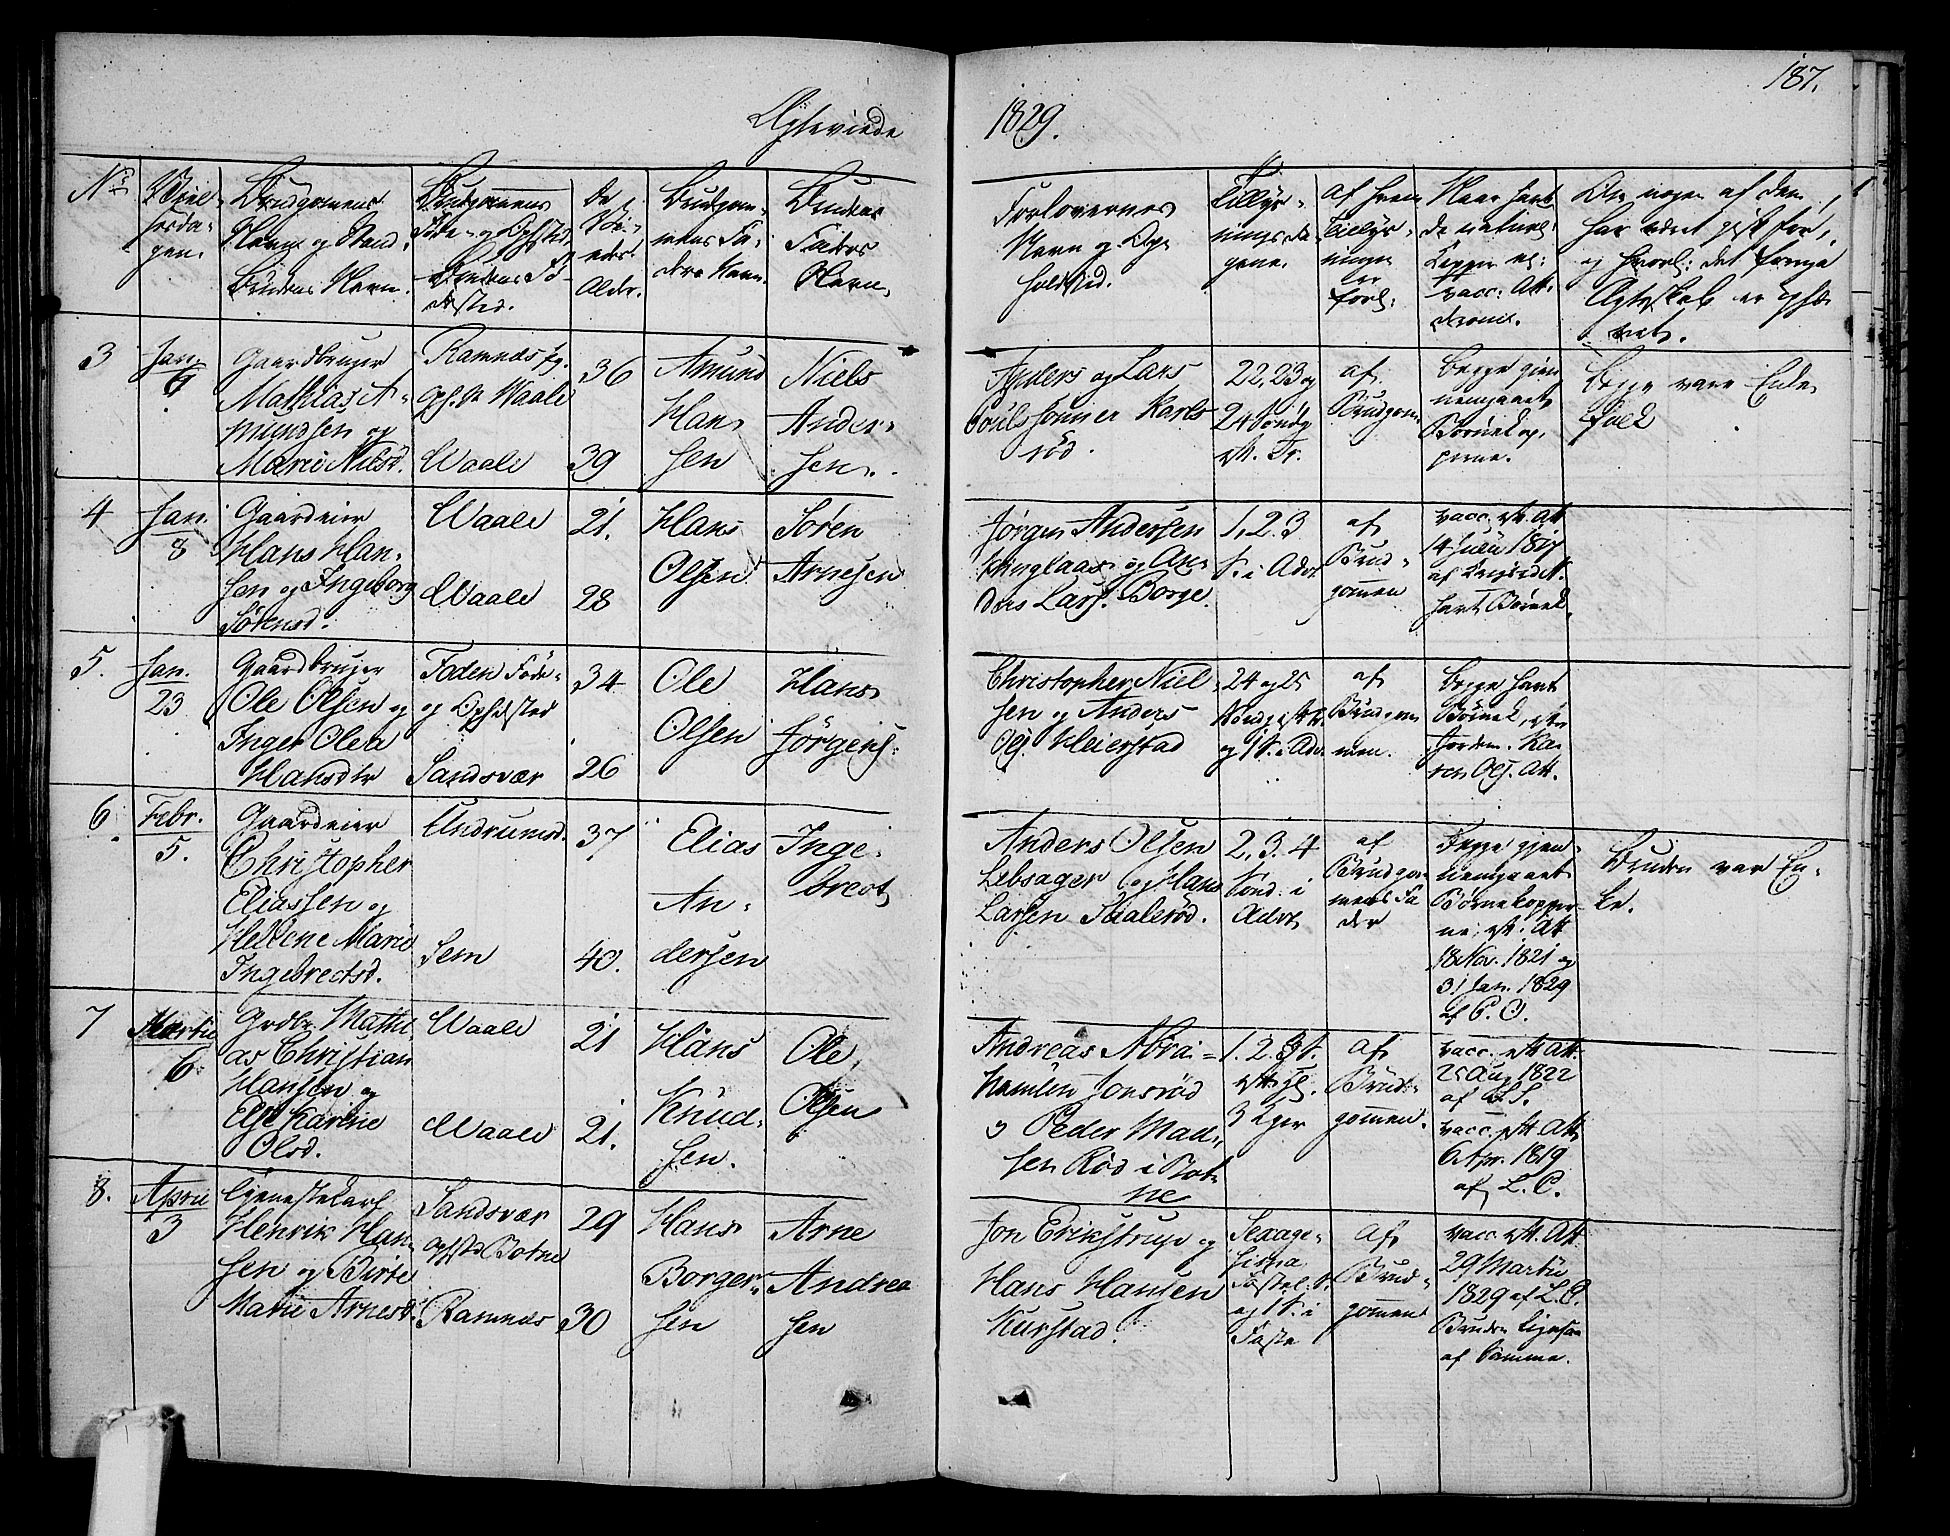 Ægteviede
1829.
187.
No
Vielsesdagen.
Brudgomens
Navn og Stand,
Brudens Navn.
Brudgomens
Føde- og Opholdsted,
Brudens Fødested.
De
Viedes
Alder.
Brudgommens
Faders Navn.
Brudens
Faders
Navn.
Forlovernes
Navn og Opholdsted.
Tillysningsdagene.
af hvem
Tillysningen
er
forl:
Naar havt
de naturl:
Kopper el:
vacc: Att:
Om nogen af dem
har været gift før,
og hvorl: det første
Ægteskab er ophævet.
3
Jan.
9
Gaardbruger
Mathias A-
mundsen og
Marie Nilsd.
Ramnes fg.
oph. Waale
Waale
36
39
Amund
Han-
sen
Niels
Ander-
sen.
Anders og Lars
Poulssønner Karls-
rød.
22, 23 og
24 Søndg
eft. Tr.
af
Brudgom.
begge gien-
nemgaaet
Børnekop-
perne.
begge vare Enke-
folk
4
Jan.
8
Gaardeier
Hans Han-
sen og Ingeborg
Sørensd.
Waale
Waale
21.
28
Hans
Olsen
Søren
Arnesen
Jørgen Andersen
og An-
ders Lars. Borge.
1, 2. 3
S. i Adv.
af
Brud-
gommen
vacc. eft. Att
14 Juli 1817
af
havt Børnek.
5.
Jan.
23
Gaardbruger
Ole Olsen og
Inger Olea
Hansdtr
Foden Føde-
og Opholdsted
Sandsvær
34
26
Ole
Olsen
Hans
Jørgens:
Christopher Niel-
sen og Anders
Ols. Heierstad
24 og 25
Søndg eft Tr.
og 1 S. i Adv.
af
Brudgom-
men.
begge havt
Børnek. eft.
Jordem. Ka-
ren Ols. Att.
6
Febr.
5.
Gaardeier
Christopher
Eliassen og
Helene Marie
Ingebrectsd.
Undrumsd.
Sem
37
40.
Elias
An-
dersen
Inge-
brect
Anders Olsen
Lebsager og Hans
Larsen Saalerød.
2, 3. 4
Sønd: i
Advt
af
Brudgom-
mens Fa-
der
Begge gjen-
nemgaaet
Børnekopper-
ne, eft. Att
18 Nov. 1821 og
31 Jan. 1829
af P. O.
Bruden var En-
ke.
7
Martii
6.
Grdbr. Mathi-
as Christian
Hansen og
Else Karine
Olsd.
Waale
Waale
21
21.
Hans
Knud-
sen.
Ole
Olsen
Andreas Abra-
hamsen Jonsrød
o Peder Mad-
sen Rød i Bot-
ne
1. 2. 3 S.
eft. Hl.
3 Kger
af
Brud-
gommen.
vacc. eft Att.
25 Aug 1822
af L.S.
vacc. eft Att.
6 Apr. 1819
af L. C.
8.
April
3
Tjenestekarl
Henrik Han-
sen og Birte
Marie Arnesd.
Sandsvær
Opsted Botne
Ramnes
29
30
Hans
Borger-
sen
Arne
Andrea
sen
Jon Erikstrup og
Hans Hansen
Kurstad.
Sexage-
sima
Fastel. S.
og 1 S. i
Faste
af
Brud-
gommen
vacc. eft. Att.
29 Martii
1829 af L. C.
Bruden ligesaa
af Samme.